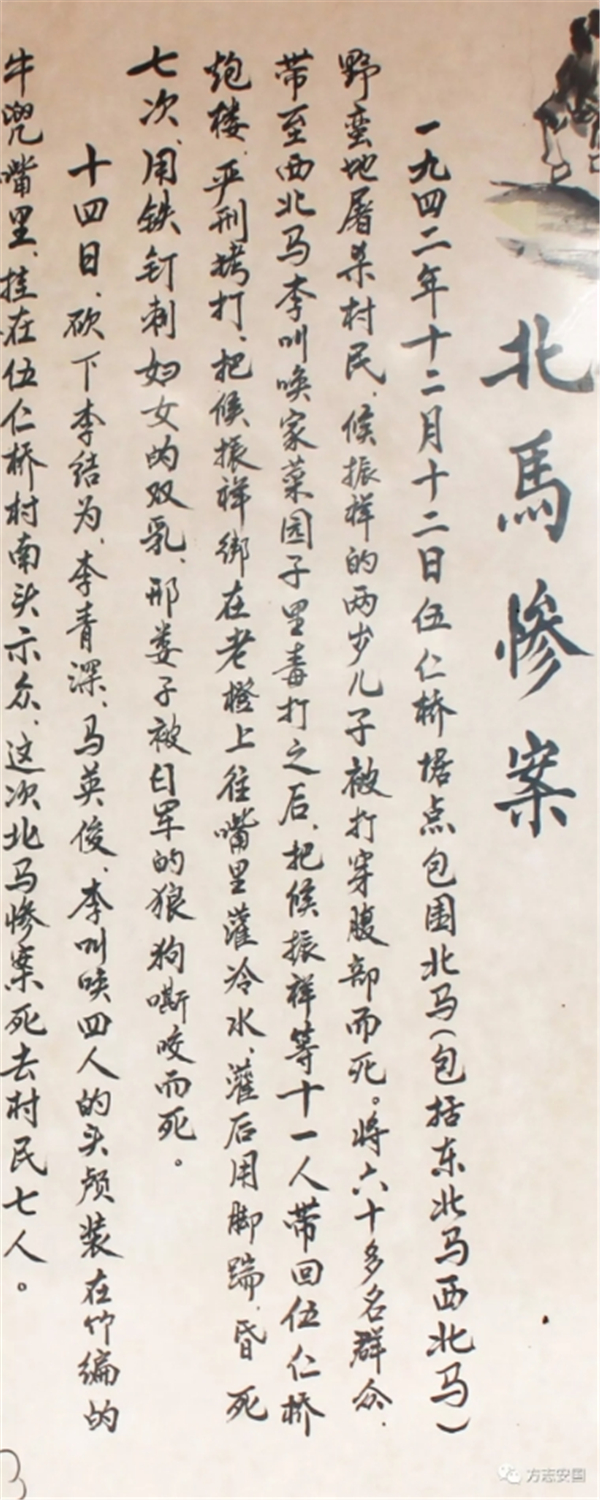 北馬惨案
一九四二年十二月十二日伍仁桥据点包围北马(包括东北马西北马)
野蛮地屠杀村民、候振祥的两岁儿子被打穿腹部而死。将六十多名群众、
带至西北马李叫唤家菜园子里毒打之后、把候振祥等十一人带回伍仁桥
炮楼、严刑拷打、把候振祥绑在老橙上往嘴里灌冷水、灌后用脚踹、昏死
七次、用铁钉刺妇女的双乳、邢娄子被日军的狼狗嘶咬而死。
十四日、砍下李结为、李青深、马英俊、李叫唤四人的头颅装在竹编的
牛兜嘴里、挂在伍仁桥村南头示众、这次北马惨案死去村民七人。
方志安国